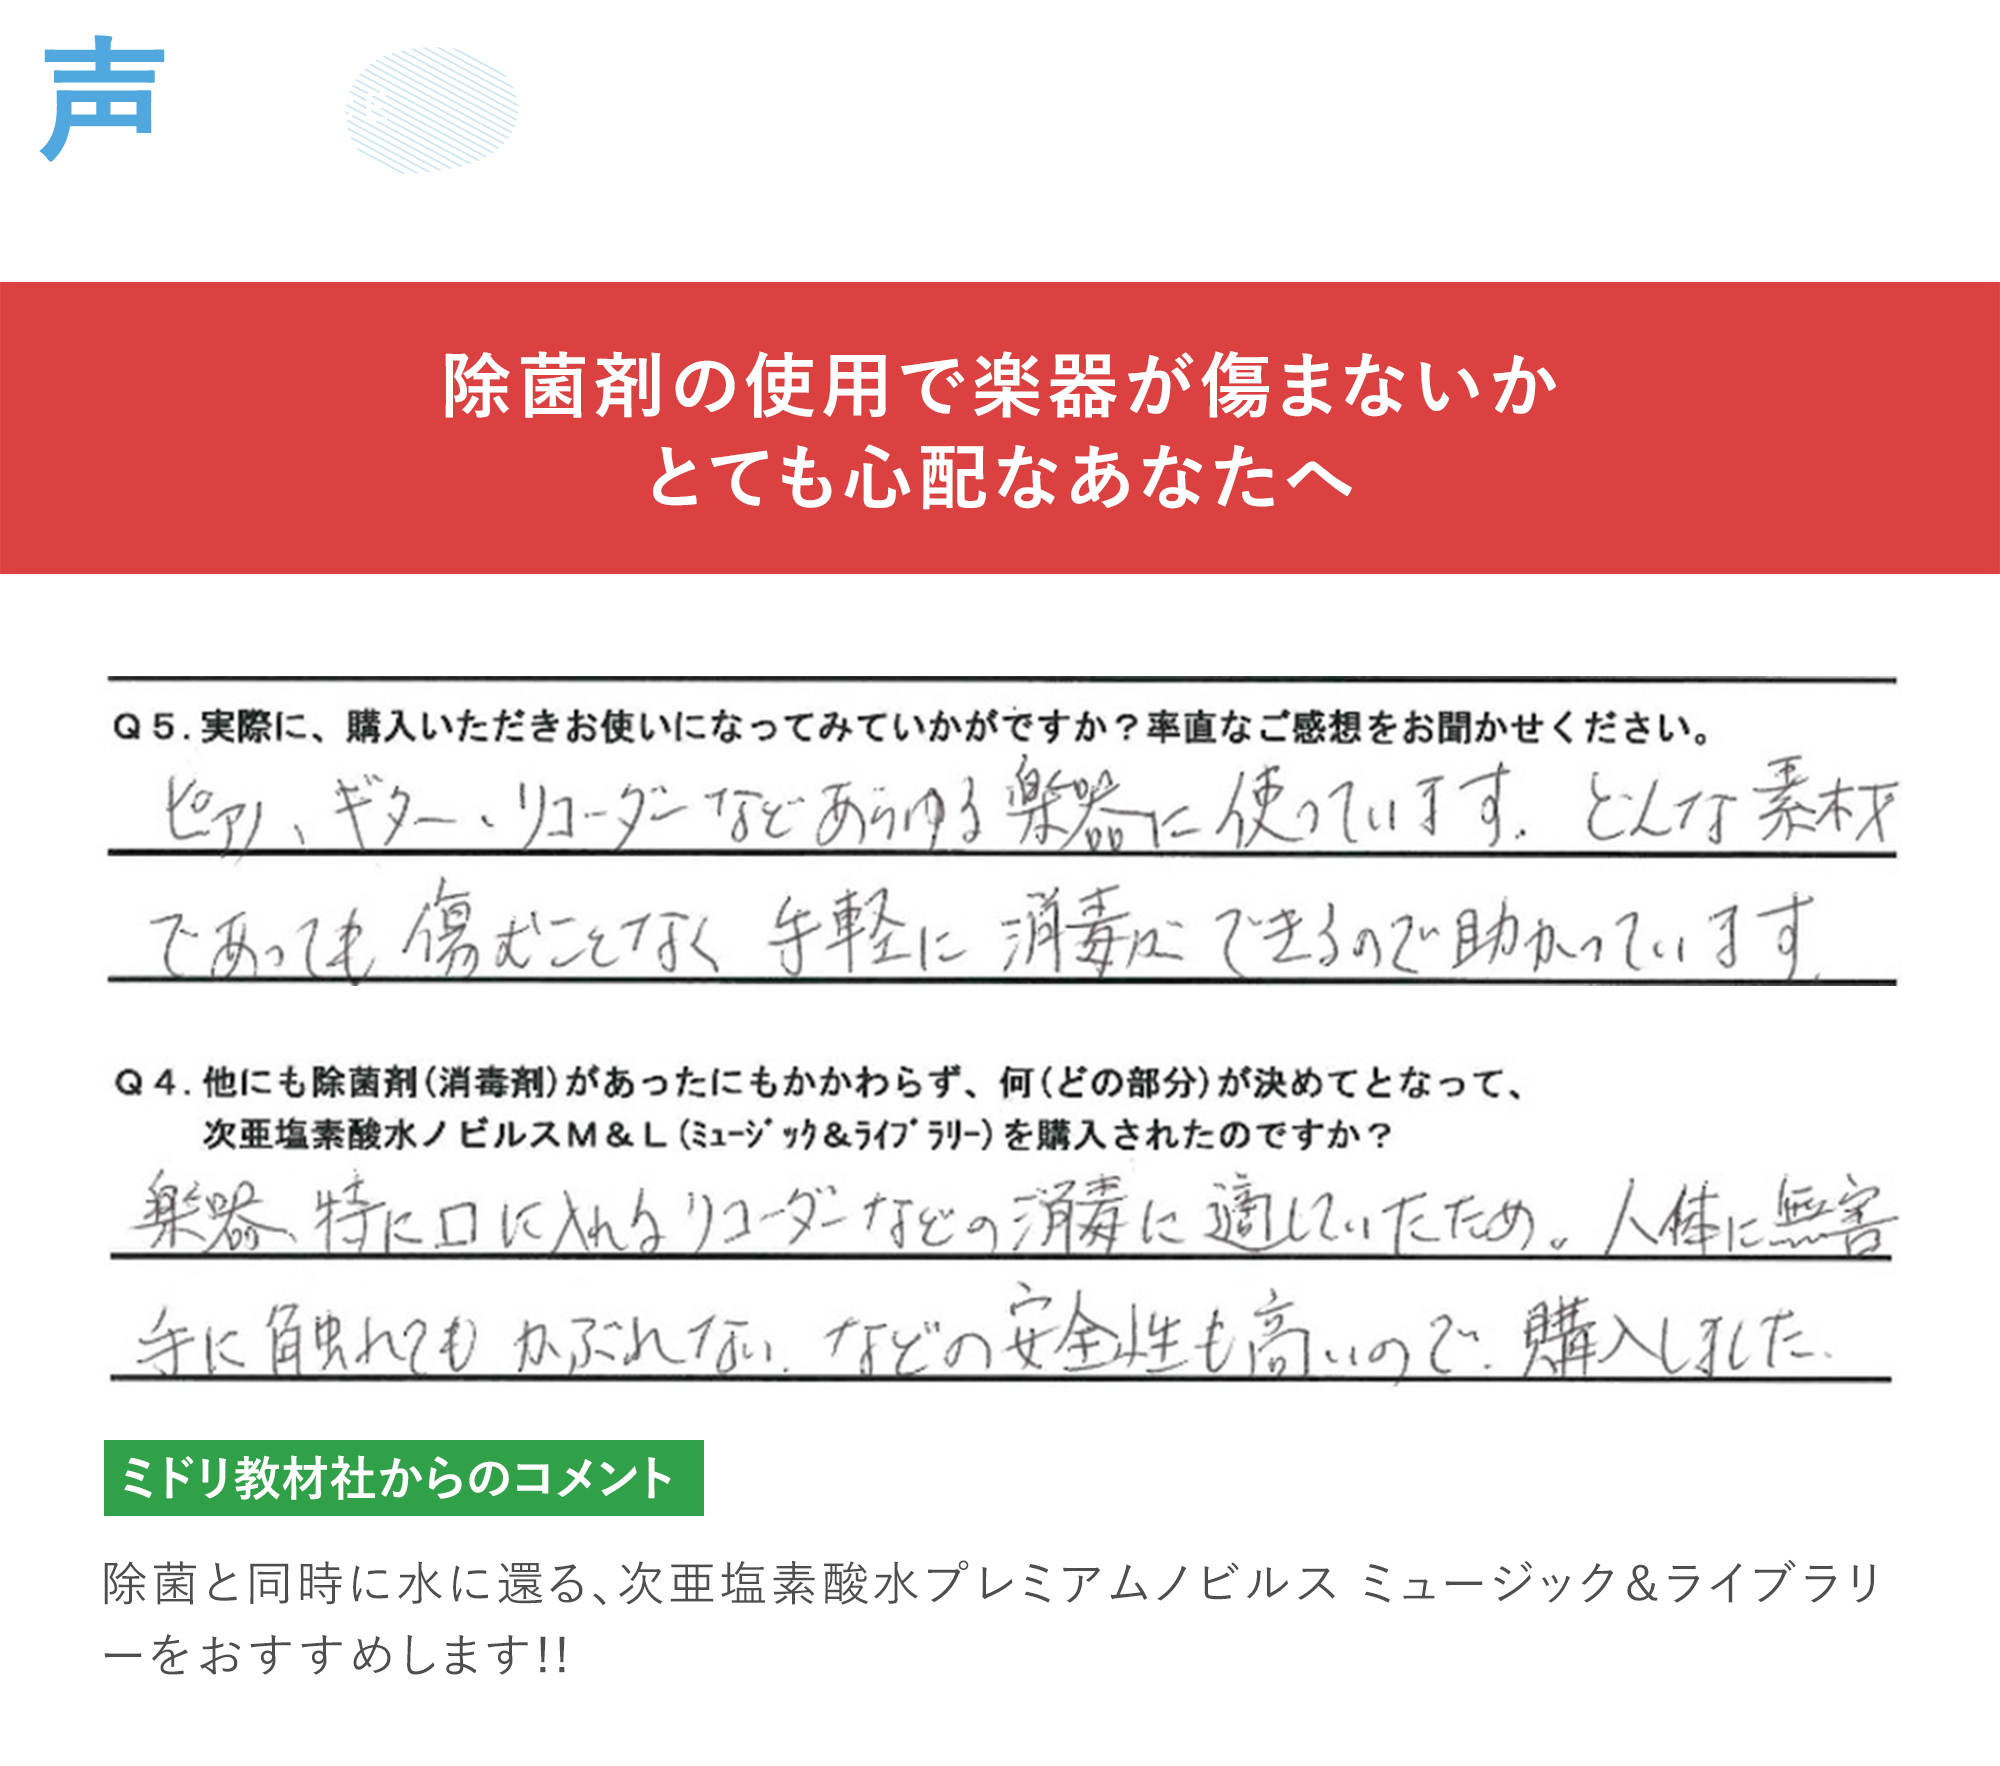 声
除菌剤の使用で楽器が傷まないか
とても心配なあなたへ
Q5.実際に、購入いただきお使いになってみていかがですか？率直なご感想をお聞かせください。
ピアノ、ギター、リコーダーなどあらゆる楽器に使っています。どんな素材
であっても傷むことなく手軽に消毒ができるので助かっています。
Q4.他にも除菌剤(消毒剤)があったにもかかわらず、何(どの部分)が決めてとなって、
次亜塩素酸水ノビルスM&L(ﾐｭｰｼﾞｯｸ&ﾗｲﾌﾞﾗﾘｰ)を購入されたのですか？
楽器、特に口に入れるリコーダーなどの消毒に適していたため。人体に無害
手に触れてもかぶれない。などの安全性も高いので、購入しました。
ミドリ教材社からのコメント
除菌と同時に水に還る、次亜塩素酸水プレミアムノビルス ミュージック&ライブラリ
ーをおすすめします!!